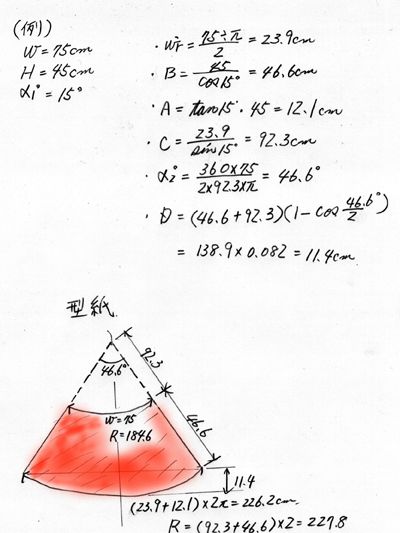 (例)
W = 75cm
H = 45cm
α₁° = 15°
・Wr = 75÷π / 2 = 23.9cm
・B = 45 / cos15° = 46.6cm
・A = tan15°・45 = 12.1cm
・C = 23.9 / sin15° = 92.3cm
・α₂° = 360×75 / 2×92.3×π = 46.6°
・D = (46.6+92.3)(1-cos 46.6° / 2)
= 138.9×0.082 = 11.4cm
型紙
92.3
46.6°
W=75
R=184.6
46.6
11.4
(23.9+12.1)×2π=226.2cm
R = (92.3+46.6)×2=227.8